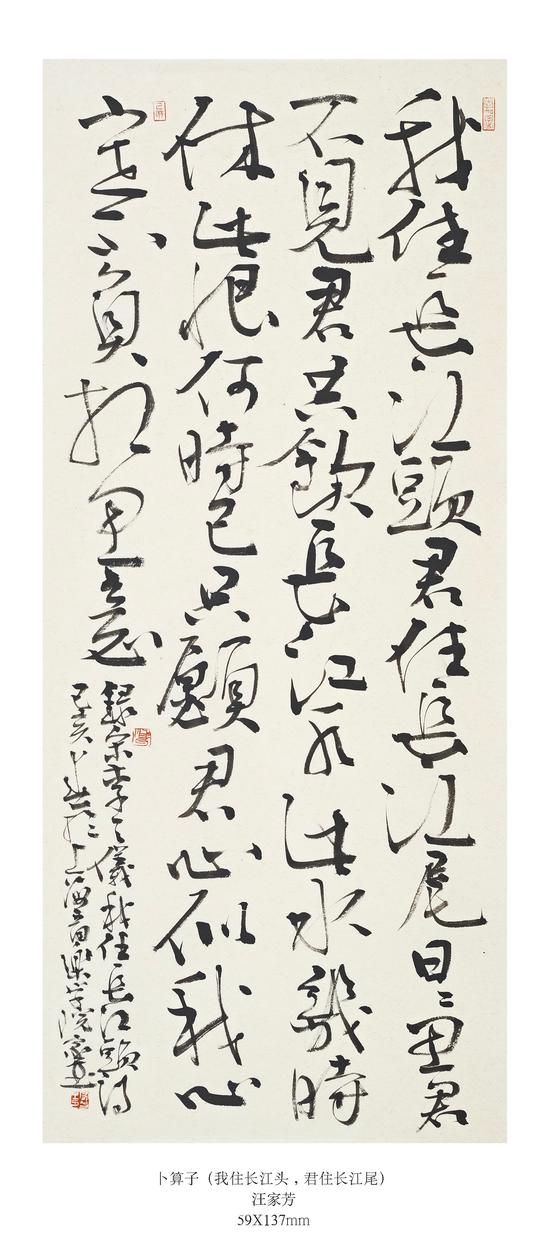 我住長江頭君住長江尾日〻思君
不見君共飲長江水此水幾時
休此恨何時已只願君心似我心
定不負相思意
錄宋李之儀我住長江頭詞
己亥於上海音樂學院
卜算子（我住长江头，君住长江尾）
汪家芳
59X137mm